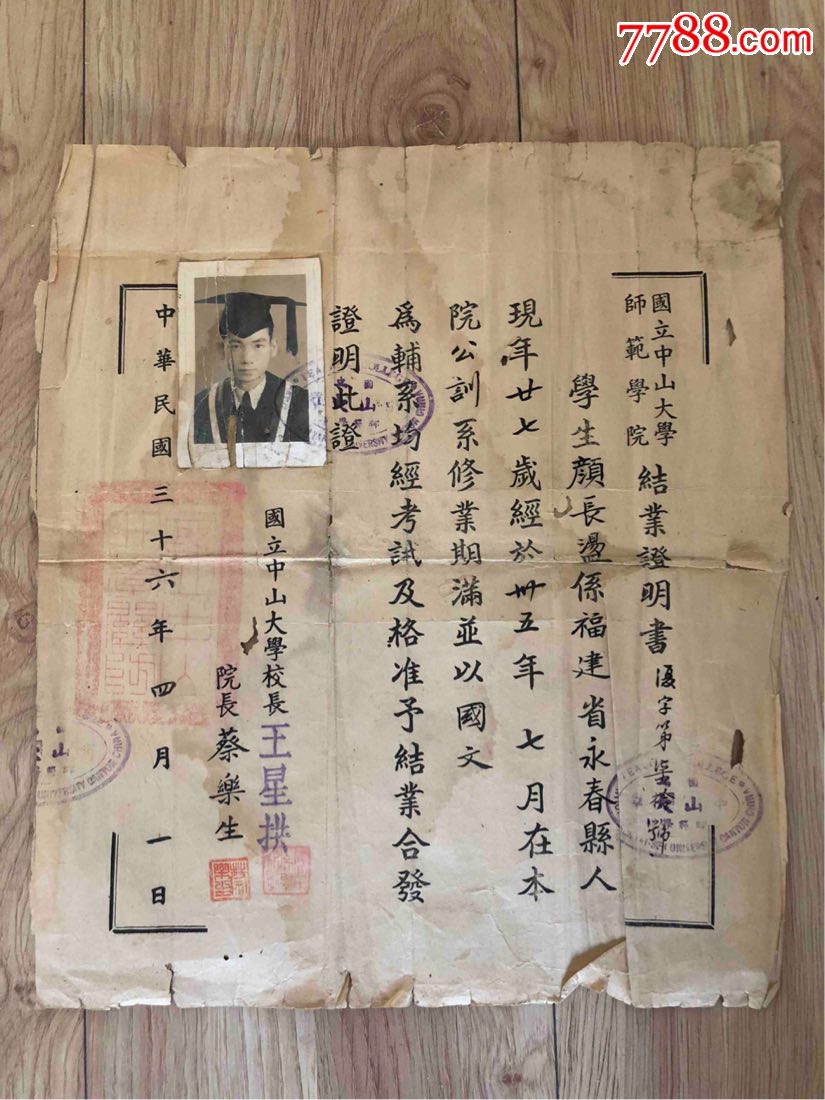 7788.com
國立中山大學
師範學院
結業證明書
復字第柒拾號
學生顏長盪係福建省永春縣人
現年廿七歲經於卅五年 七月在本
院公訓系修業期滿並以國文
爲輔系均經考試及格准予結業合發
證明此證
國立中山大學校長王星拱
院長蔡樂生
中華民國三十六年四月 一日